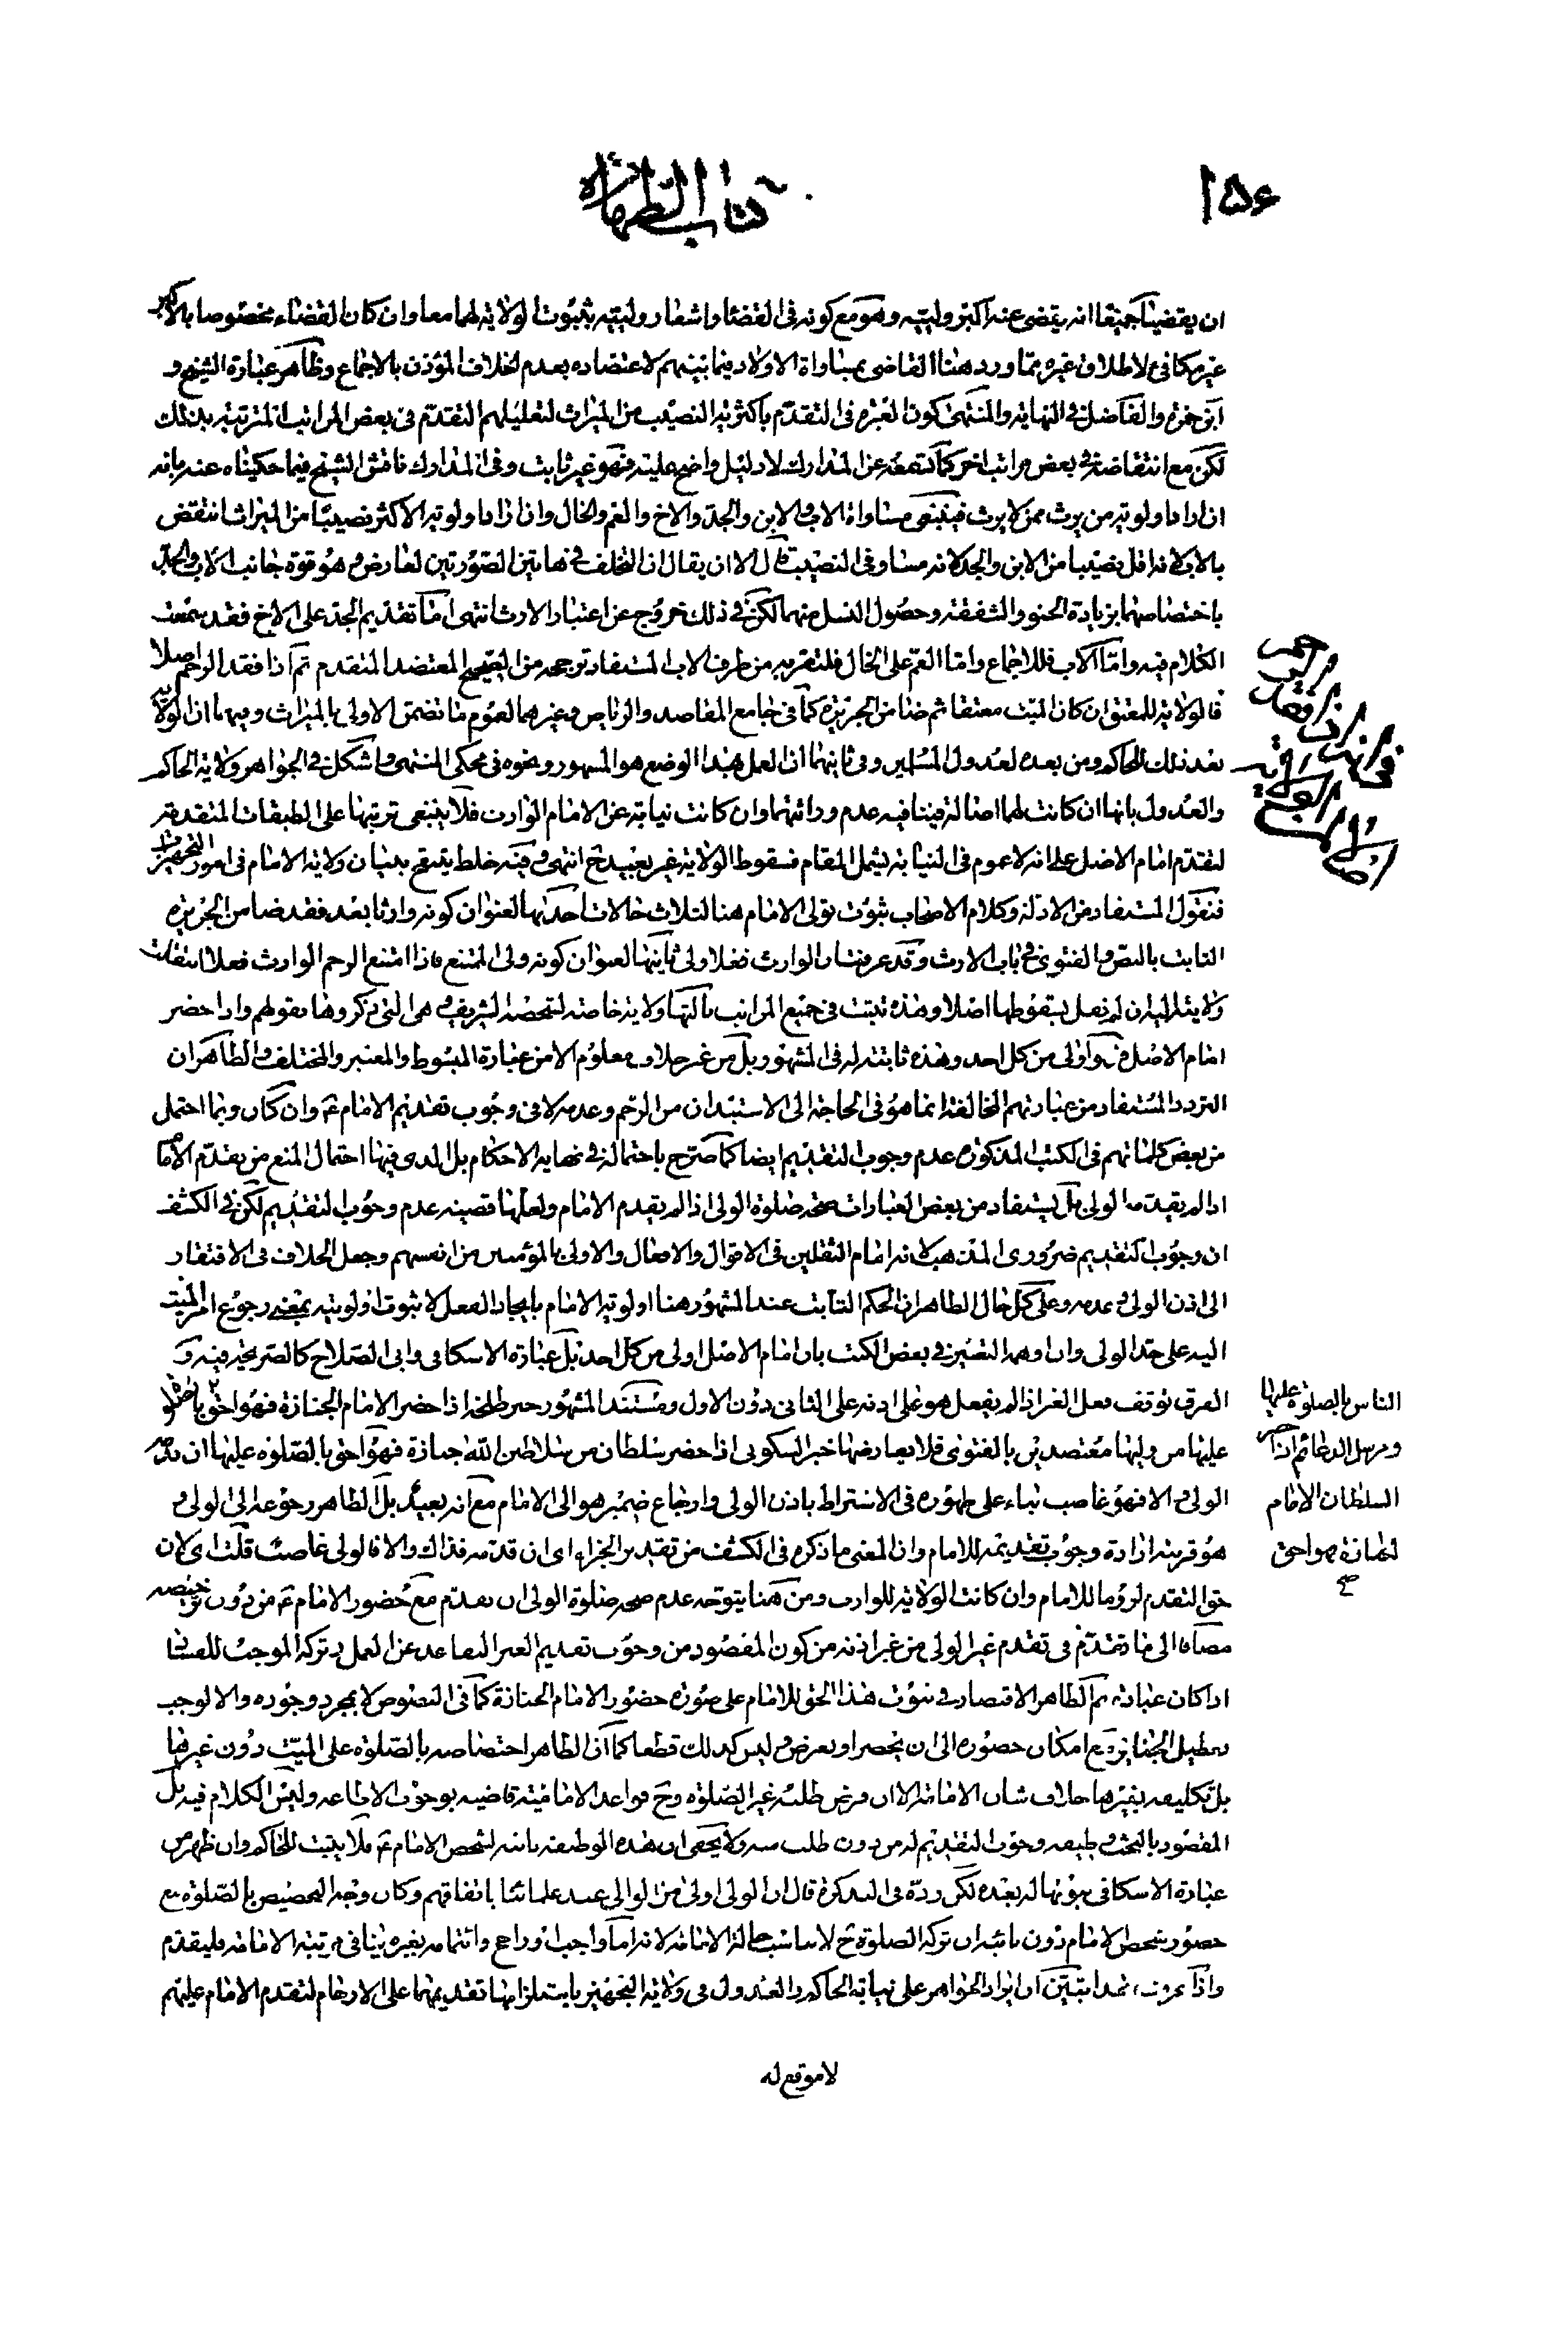 ١٥٦
كتاب الطهارة
ان يقضيا جميعا انه يقضى عنه اكبر ولييه وهو مع كونه فى القضاء واشعار ولييه بثبوت الولاية لهما معا وان كان القضاء مخصوصا بالاكبر
غير مكافئ لاطلاق غيره مما ورد هنا القاضى بمساواة الاولاد فيما بينهم لاعتضاده بعدم الخلاف المؤذن بالاجماع وظاهر عبارة الشيخ و
ابن حمزة والفاضل فى النهاية والمنتهى كون العبرة فى التقدم باكثرية النصيب من الميراث لتعليلهم التقدم فى بعض المراتب المترتبة بذلك
لكن مع انتقاضه فى بعض مراتب اخر كما تسمعه عن المدارك لا دليل واضح عليه فهو غير ثابت وفى المدارك ناقش الشيخ فيما حكيناه عنه بانه
ان اراد اولوية من يرث ممن لا يرث فينبغى مساواة الاب والابن والجد والاخ والعم والخال وان اراد اولوية الاكثر نصيبا من الميراث انتقض
بالاب لانه اقل نصيبا من الابن والجد لانه مساو فى النصيب قال الا ان يقال ان التخلف فى هاتين الصورتين لعارض وهو قوة جانب الاب والجد
باختصاصهما بزيادة الحنو والشفقة وحصول النسل منهما لكن فى ذلك خروج عن اعتبار الارث انتهى اما تقديم الجد على الاخ فقد سمعت
الكلام فيه واما الاب فللاجماع واما العم على الخال فلتقريبه من طرف الاب المستفاد ترجيحه من الصحيح المعتضد المتقدم ثم اذا فقد الرحم اصلا
فالولاية للمعتق ان كان الميت معتقا ثم ضامن الجريرة كما فى جامع المقاصد والرياض وغيرهما لعموم ما تضمن الاولى بالميراث وفيهما ان الولاية
بعد ذلك للحاكم ومن بعده لعدول المسلمين وفى ثانيهما ان العمل بهذا الوضع هو المشهور ونحوه فى محكى المنتهى واشكل فى الجواهر ولاية الحاكم
والعدول بانها ان كانت لهما اصالة فينافيه عدم وراثتهما وان كانت نيابة عن الامام الوارث فلا ينبغى ترتبها على الطبقات المتقدمة
لتقدم امام الاصل على انه لا عموم فى النيابة يشمل المقام فسقوط الولاية غير بعيد ح انتهى وفيه خلط يتضح ببيان ولاية الامام فى امور التجهيزات
فنقول المستفاد من الادلة وكلام الاصحاب ثبوت تولى الامام هنا لثلاث حالات احديها لعنوان كونه وارثا بعد فقد ضامن الجريرة
الثابت بالنص والفتوى فى باب الارث وقد عرفت ان الوارث فعلا ولى ثانيتها لعنوان كونه ولى الممتنع فاذا امتنع الرحم الوارث فعلا انتقلت
ولايته اليه ان لم نقل بسقوطها اصلا وهذه تثبت فى جميع المراتب ثالثتها ولاية خاصة لشخصه الشريف وهى التى ذكروها بقولهم واذا حضر
امام الاصل فهو اولى من كل احد وهذه ثابتة له فى المشهور بل من غير خلاف معلوم الا من عبارة المبسوط والمعتبر والمختلف والظاهر ان
التردد المستفاد من عبارتهم المخالفة انما هو فى الحاجة الى الاستيذان من الرحم وعدمه لا فى وجوب تقديم الامام ع وان كان ربما احتمل
من بعض كلماتهم فى الكتب المذكورة عدم وجوب التقديم ايضا كما صرح باحتماله فى نهاية الاحكام بل الذى فيها احتمال المنع من تقدم الامام
اذا لم يقدمه الولى بل يستفاد من بعض العبارات صحة صلوة الولى اذا لم يقدم الامام ولعلها قضية عدم وجوب التقديم لكن فى الكشف
ان وجوب التقديم ضرورى المذهب لانه امام الثقلين فى الاقوال والافعال والاولى بالمؤمنين من انفسهم وجعل الخلاف فى الافتقار
الى اذن الولى وعدمه وعلى كل حال الظاهر ان الحكم الثابت عند المشهور هنا اولوية الامام بايجاد الفعل لا ثبوت اولويته بمعنى رجوع امر الميت
اليه على حد الولى وان اوهم التعبير فى بعض الكتب بان امام الاصل اولى من كل احد بل عبارة الاسكافى وابى الصلاح كالصريحة فيه و
الفرق توقف فعل الغير اذا لم يفعل هو على اذنه على الثانى دون الاول ومستند المشهور خبر طلحة اذا حضر الامام الجنازة فهو احق بالصلوة
عليها من وليها معتضدين بالفتوى فلا يعارضها خبر السكونى اذا حضر سلطان من سلاطين الله جنازة فهو احق بالصلوة عليها ان قدمه
الولى والا فهو غاصب بناء على ظهوره فى الاشتراط باذن الولى وارجاع ضمير هو الى الامام مع انه بعيد بل الظاهر رجوعه الى الولى و
هو قرينة ارادة وجوب تقديمه للامام وان المعنى ما ذكره فى الكشف من تقدير الجزاء اى ان قدمه فذاك والا فالولى غاصب قلت اى لان
حق التقدم لزوما للامام وان كانت الولاية للوارث ومن هنا يتوجه عدم صحة صلوة الولى ان تقدم مع حضور الامام ع من دون ترخيصه
مضافا الى ما تقدم فى تقدم غير الولى من غير اذنه من كون المقصود من وجوب تقديم الغير التقاعد عن العمل وتركه الموجب للفساد
اذا كان عبادة ثم الظاهر الاقتصار فى ثبوت هذا الحق للامام على صورة حضور الامام الجنازة كما فى النصوص لا بمجرد وجوده والا لوجب
تعطيل الجنايز مع امكان حضوره الى ان يحضر او يعرض وليس كذلك قطعا كما ان الظاهر اختصاصه بالصلوة على الميت دون غيرها
بل تكليفه بغيرها خلاف شان الامامة الا ان فرض طلبه غير الصلوة وح قواعد الامامية قاضية بوجوب الاطاعة وليس الكلام فيه بل
المقصود بالبحث وظيفة وجوب التقديم له من دون طلب منه ولا يخفى ان هذه الوظيفة ثابتة لشخص الامام ع فلا يثبت للحاكم وان ظهر من
عبارة الاسكافى ثبوتها له بعده لكن رده فى التذكرة قال ان الولى اولى من الوالى عند علمائنا باتفاقهم وكان وجه التخصيص بالصلوة مع
حضور شخص الامام دون نائبه ان تركه الصلوة ح لا يناسب حالة الامامة لانه اما واجب او راجح وائتمامه بغيره ينافى مرتبة الامامة فليقدم
واذا عرفت هذا تبين ان ايراد الجواهر على نيابة الحاكم والعدول فى ولاية التجهيز باستلزامها تقديمهما على الارحام لتقدم الامام عليهم
الناس بالصلوة عليها
ومرسل الدعائم اذا حضر
السلطان الامام
الجنازة فهو احق
صح
لا موقع له